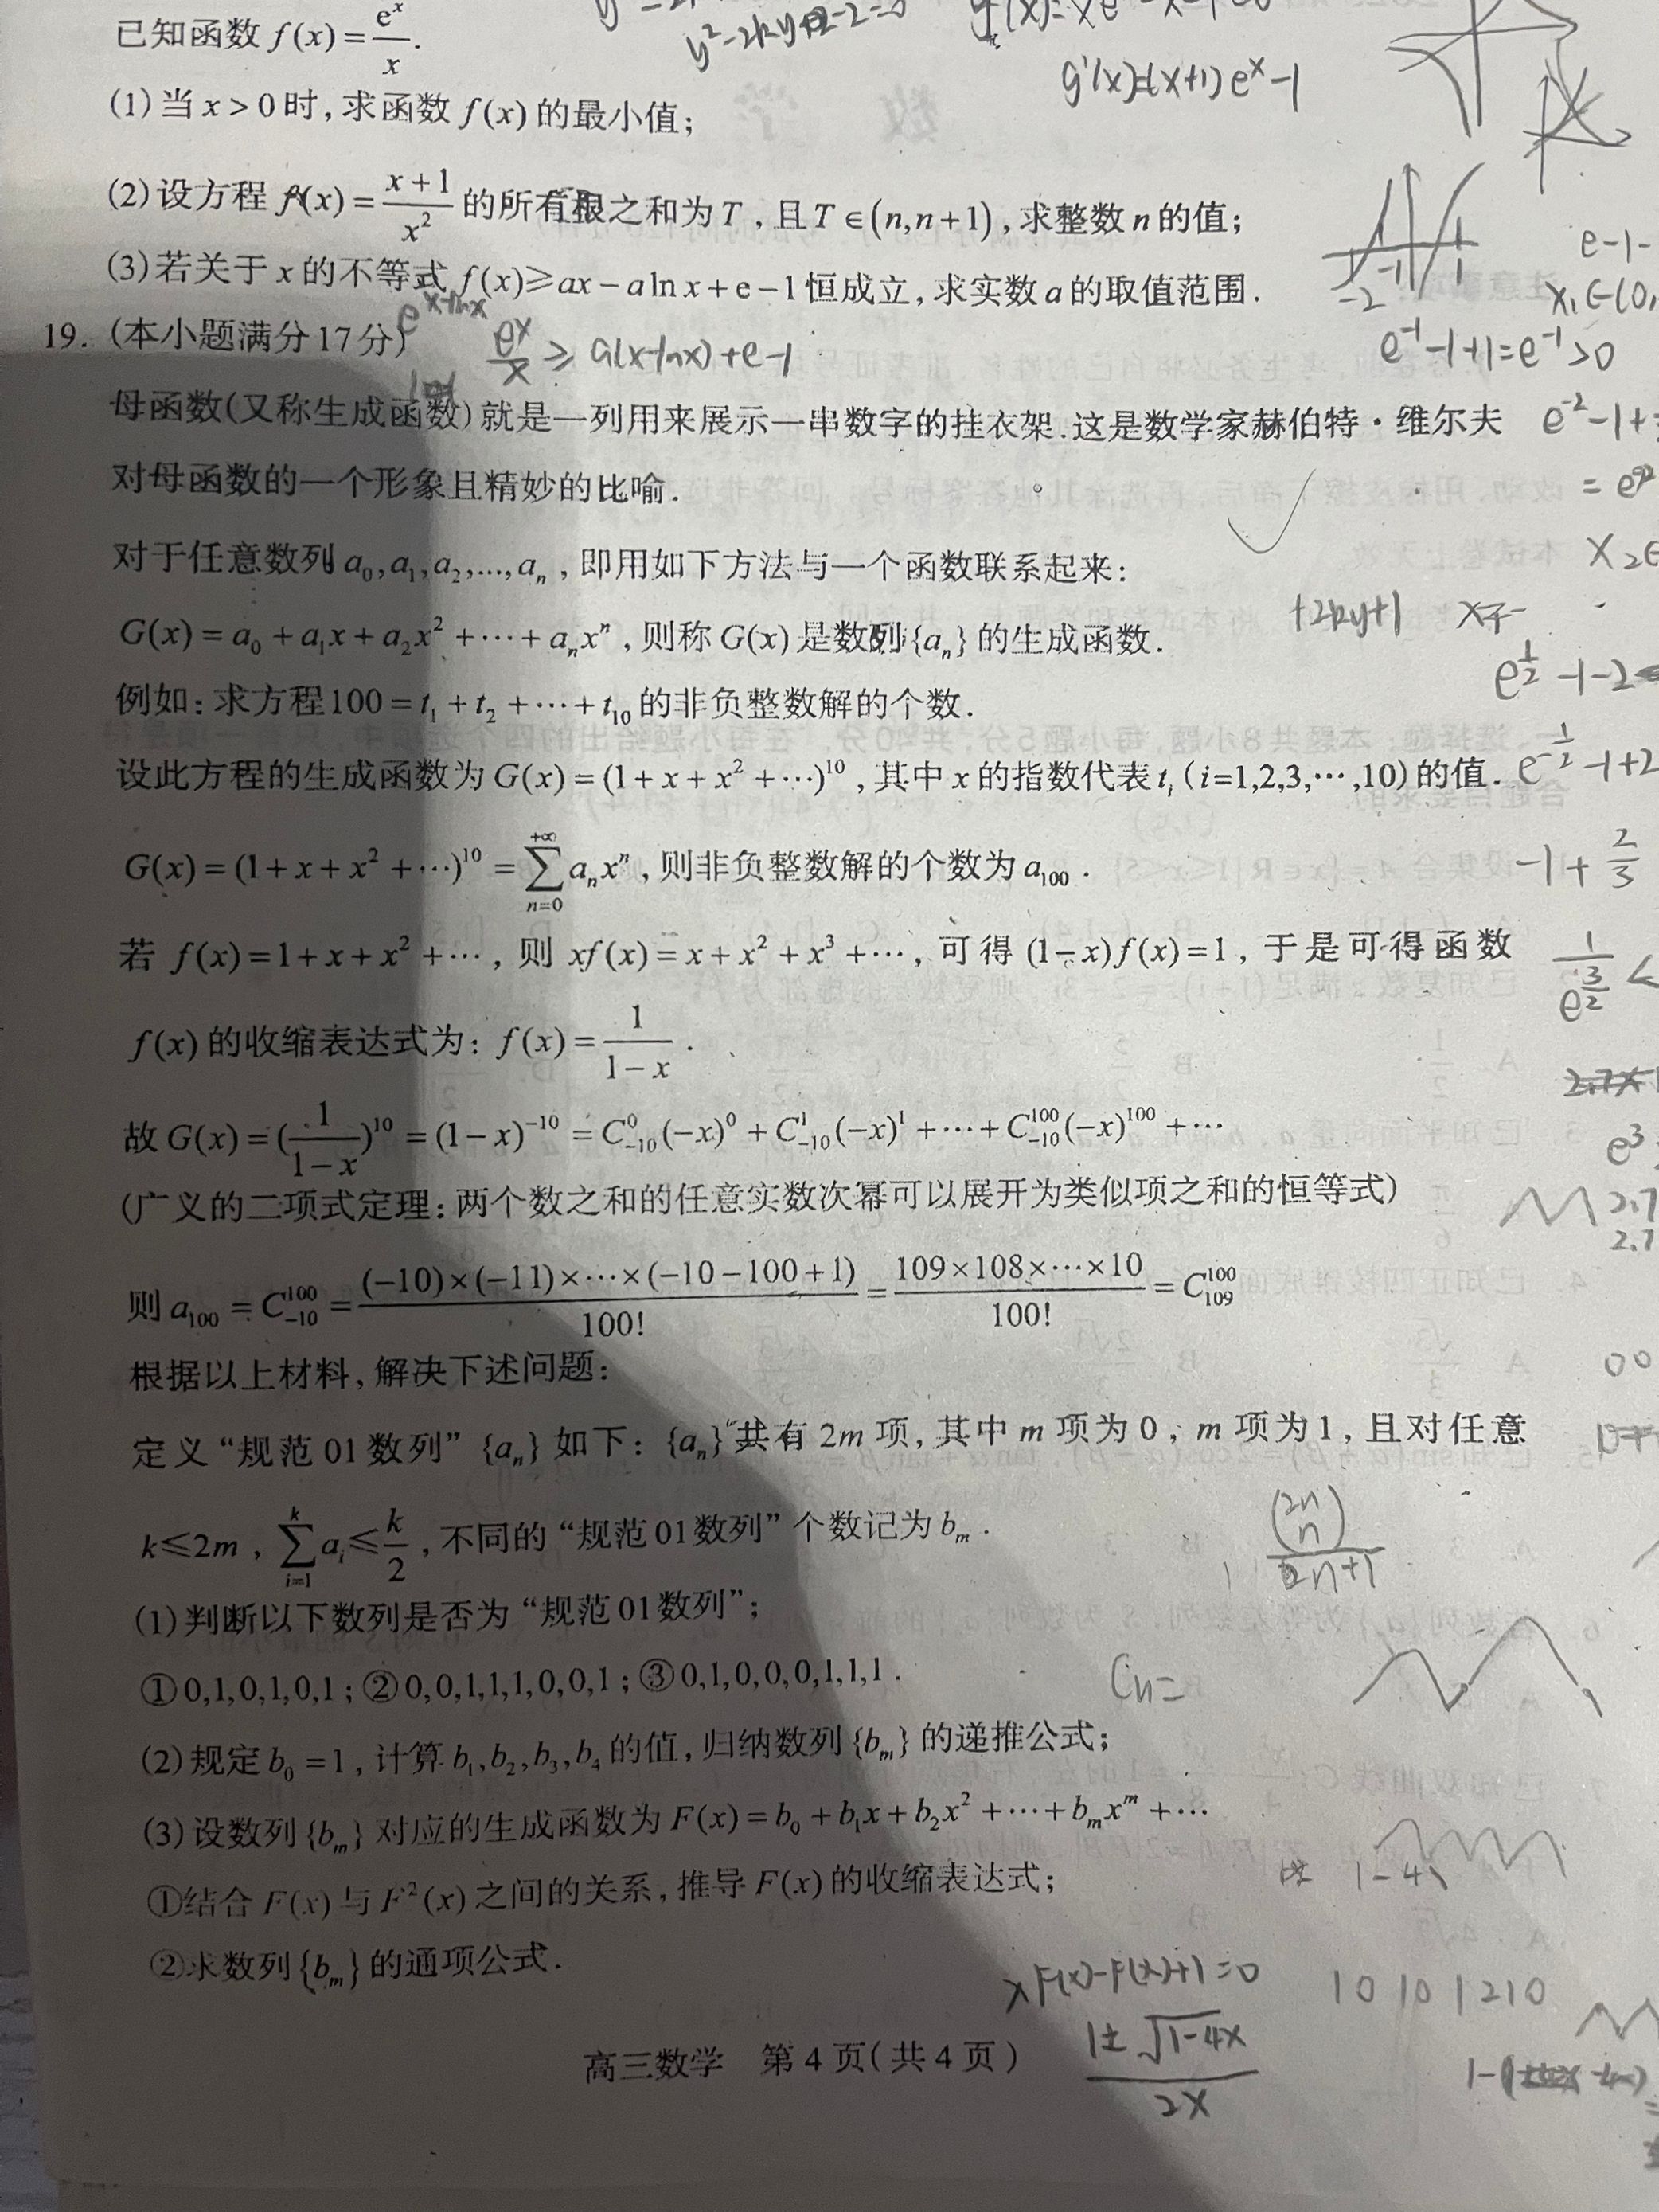 已知函数 f(x)=e^x/x.
(1)当 x>0时,求函数 f(x)的最小值;
(2)设方程 f(x)=(x+1)/x²的所有根之和为T,且T∈(n,n+1),求整数n的值;
(3)若关于x的不等式 f(x)≥ax-alnx+e-1恒成立,求实数a的取值范围.
19.(本小题满分17分)
母函数(又称生成函数)就是一列用来展示一串数字的挂衣架.这是数学家赫伯特·维尔夫
对母函数的一个形象且精妙的比喻.
对于任意数列a₀,a₁,a₂,...,aₙ,即用如下方法与一个函数联系起来:
G(x)=a₀+a₁x+a₂x²+⋯+aₙxⁿ,则称G(x)是数列{aₙ}的生成函数.
例如:求方程100=t₁+t₂+⋯+t₁₀的非负整数解的个数.
设此方程的生成函数为G(x)=(1+x+x²+⋯)¹⁰,其中x的指数代表tᵢ(i=1,2,3,⋯,10)的值.
G(x)=(1+x+x²+⋯)¹⁰=∑_{n=0}^{+∞}aₙxⁿ,则非负整数解的个数为a₁₀₀.
若 f(x)=1+x+x²+⋯,则 xf(x)=x+x²+x³+⋯,可得(1-x)f(x)=1,于是可得函数
f(x)的收缩表达式为:f(x)=1/(1-x).
故G(x)=(1/(1-x))¹⁰=(1-x)⁻¹⁰=C_{-10}^{0}(-x)⁰+C_{-10}^{1}(-x)¹+⋯+C_{-10}^{100}(-x)¹⁰⁰+⋯
(广义的二项式定理:两个数之和的任意实数次幂可以展开为类似项之和的恒等式)
则a₁₀₀=C_{-10}^{100}=(-10)×(-11)×⋯×(-10-100+1)/100!=109×108×⋯×10/100!=C_{109}^{100}
根据以上材料,解决下述问题:
定义“规范01数列”{aₙ}如下:{aₙ}共有2m项,其中m项为0,m项为1,且对任意
k≤2m,∑_{i=1}^{k}aᵢ≤k/2,不同的“规范01数列”个数记为bₘ.
(1)判断以下数列是否为“规范01数列”;
①0,1,0,1,0,1;②0,0,1,1,1,0,0,1;③0,1,0,0,0,1,1,1.
(2)规定b₀=1,计算b₁,b₂,b₃,b₄的值,归纳数列{bₘ}的递推公式;
(3)设数列{bₘ}对应的生成函数为F(x)=b₀+b₁x+b₂x²+⋯+bₘxᵐ+⋯
①结合F(x)与F²(x)之间的关系,推导F(x)的收缩表达式;
②求数列{bₘ}的通项公式.
高三数学 第4页(共4页)
g'(x)=(x+1)e^x-1
e^x/x≥a(x-lnx)+e-1
e⁻¹-1+1=e⁻¹>0
+2ky+1
-1+2/3
Cn=
1±√(1-4x)/2x
1 0 1 0 1 2 1 0